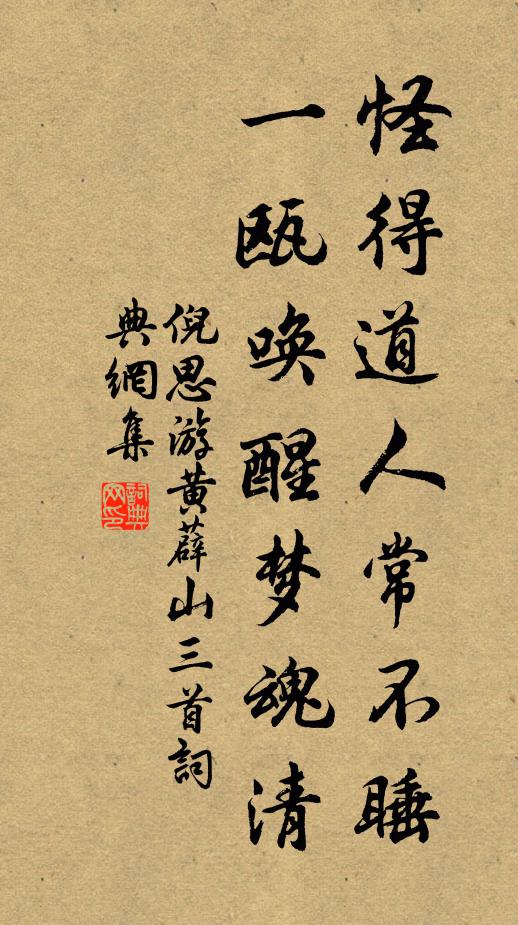 怪得道人常不睡
一瓯唤醒梦魂清
倪思游黄薜山三首詞
典網集
詞典网印